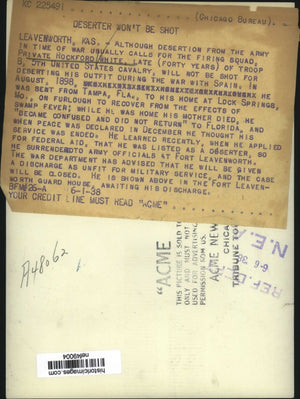 KC 225491
(CHICAGO BUREAU).
DESERTER WON'T BE SHOT
LEAVENWORTH, KAS. - ALTHOUGH DESERTION FROM THE ARMY
IN TIME OF WAR USUALLY CALLS FOR THE FIRING SQUAD,
PRIVATE ROCKFORD WHITE, LATE (FORTY YEARS) OF TROOP
B, 5TH UNITED STATES CAVALRY, WILL NOT BE SHOT FOR
DESERTING HIS OUTFIT DURING THE WAR WITH SPAIN. IN
AUGUST, 1898, HE
WAS SENT FROM TAMPA, FLA. TO HIS HOME AT LOCK SPRINGS,
MO., ON FURLOUGH TO RECOVER FROM THE EFFECTS OF
SWAMP FEVER. WHILE HE WAS HOME HIS MOTHER DIED, HE
"BECAME CONFUSED AND DID NOT RETURN" TO FLORIDA, AND
WHEN PEACE WAS DECLARED IN DECEMBER HE THOUGHT HIS
SERVICE WAS ENDED. HE LEARNED RECENTLY, WHEN HE APPLIED
FOR FEDERAL AID, THAT HE WAS LISTED AS A DESERTER, SO
HE SURRENDERED TO ARMY OFFICIALS AT FORT LEAVENWORTH.
THE WAR DEPARTMENT HAS ADVISED THAT HE WILL BE GIVEN
A DISCHARGE AS UNFIT FOR MILITARY SERVICE, AND THE CASE
WILL BE CLOSED. HE IS SHOWN ABOVE IN THE FORT LEAVEN-
WORTH GUARD HOUSE, AWAITING HIS DISCHARGE.
BFM/26-A 6-1-38
YOUR CREDIT LINE MUST HEAD "ACME"
A48062
"ACME
THIS PICTURE IS SOLD TO
ONLY AND MUST NOT
USED FOR ADVERTISING
PERMISSION FROM US.
ACME NEW
CHICA
TRIBUNE TO
N.E.A.
REF. D
6-6 38
historicimages.com
nef49004